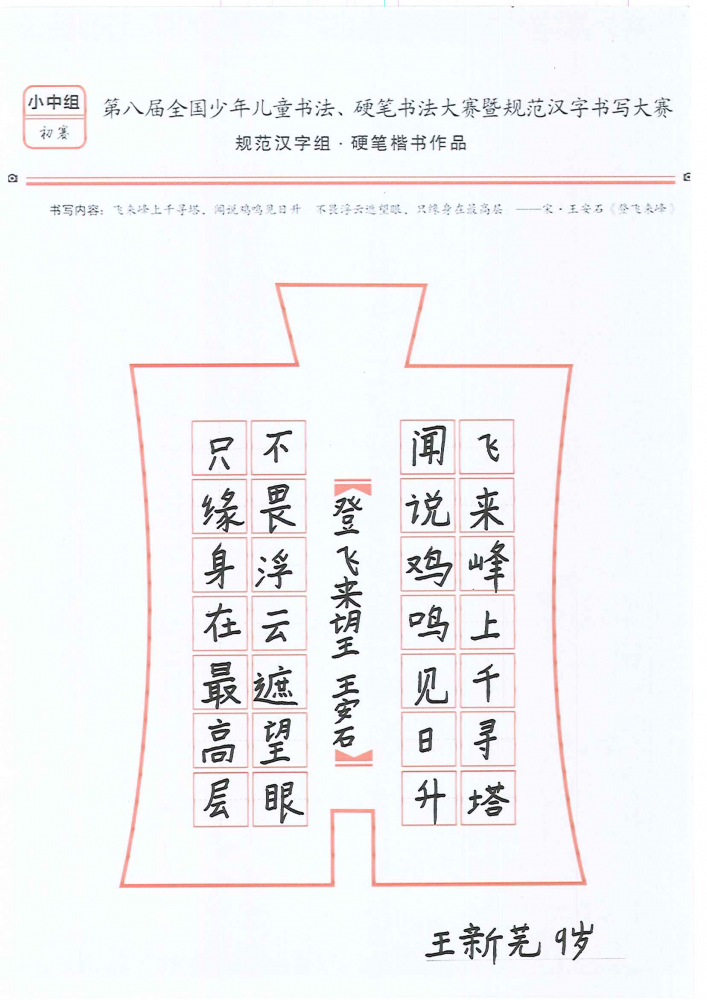 小中组
初赛
第八届全国少年儿童书法、硬笔书法大赛暨规范汉字书写大赛
规范汉字组·硬笔楷书作品
书写内容：飞来峰上千寻塔，闻说鸡鸣见日升 不畏浮云遮望眼，只缘身在最高层 ——宋·王安石《登飞来峰》
飞来峰上千寻塔
闻说鸡鸣见日升
登飞来望 王安石
不畏浮云遮望眼
只缘身在最高层
王新芜 9岁